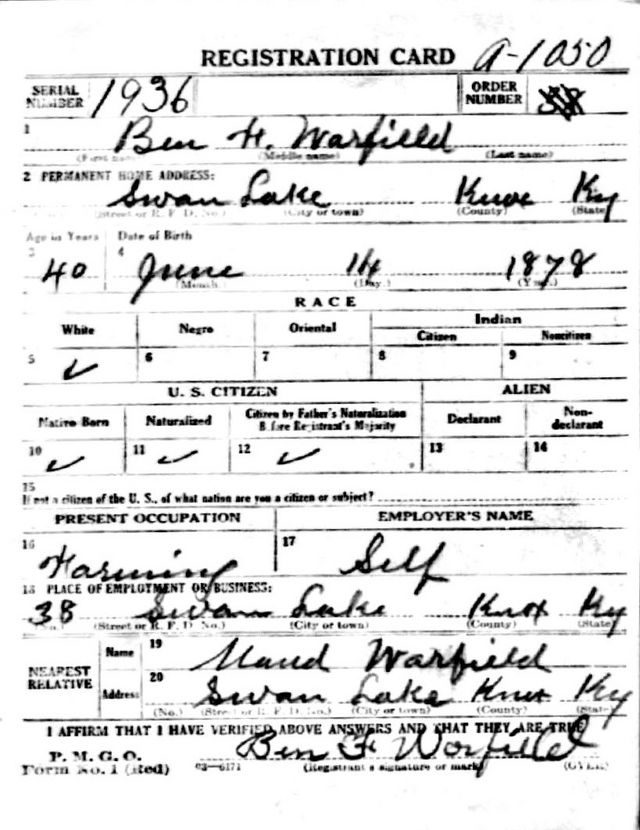 REGISTRATION CARD A-1050
SERIAL NUMBER 1936 ORDER NUMBER
1 Ben H. Warfield
(First name) (Middle name) (Last name)
2 PERMANENT HOME ADDRESS:
Swan Lake Knox Ky
(Street or R. F. D. No.) (City or town) (County) (State)
Age in Years Date of Birth
3 40 4 June 14 1878
(Month) (Day) (Year)
RACE
White Negro Oriental Indian
Citizen Noncitizen
5 ✓ 6 7 8 9
U. S. CITIZEN ALIEN
Native Born Naturalized Citizen by Father's Naturalization Before Registrant's Majority Declarant Non-declarant
10 ✓ 11 ✓ 12 ✓ 13 14
15
If not a citizen of the U. S., of what nation are you a citizen or subject?
PRESENT OCCUPATION EMPLOYER'S NAME
16 Farming 17 Self
18 PLACE OF EMPLOYMENT OR BUSINESS:
38 Swan Lake Knox Ky
(No.) (Street or R. F. D. No.) (City or town) (County) (State)
NEAREST RELATIVE Name 19 Maud Warfield
Address 20 Swan Lake Knox Ky
(No.) (Street or R. F. D. No.) (City or town) (County) (State)
I AFFIRM THAT I HAVE VERIFIED ABOVE ANSWERS AND THAT THEY ARE TRUE
P. M. G. O.
Form No. 1 (Red) 03—6171 Ben H Warfield
(Registrant's signature or mark) (OVER)